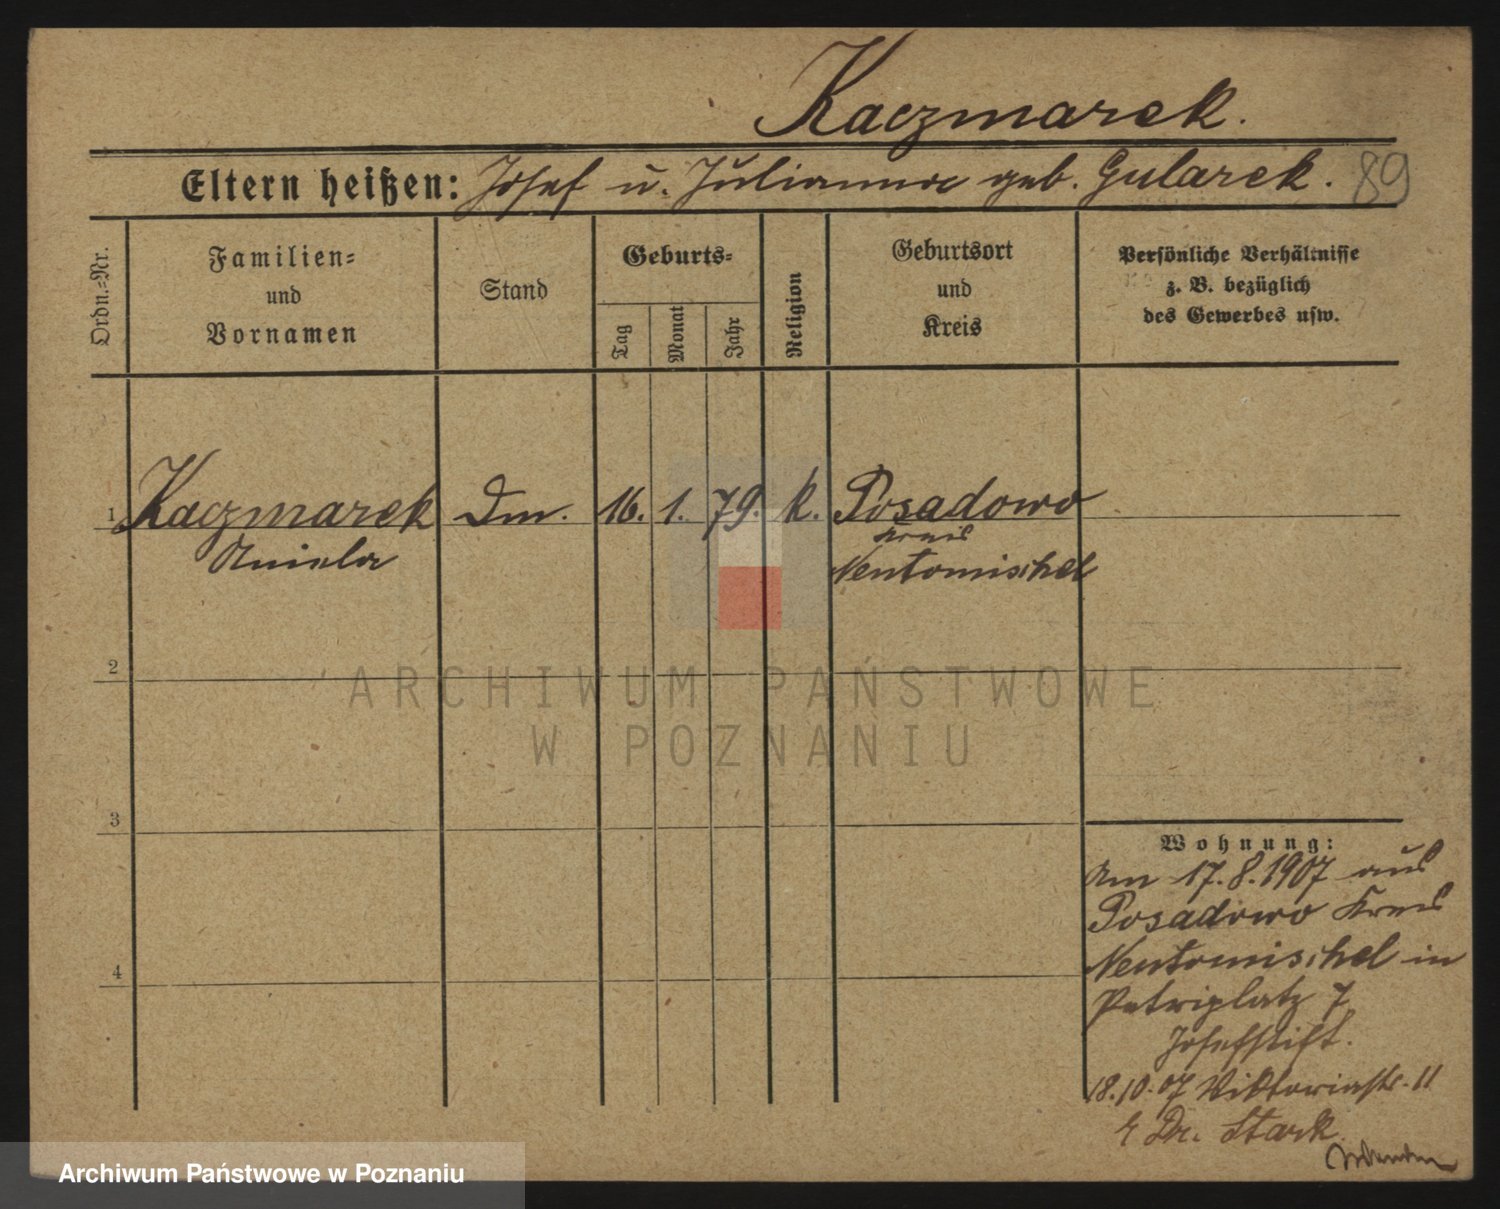 Kaczmarek.
Eltern heißen: Josef u. Julianna geb. Gularek. 89
Ordn.-Nr.
Familien-
und
Vornamen
Stand
Geburts-
Tag
Monat
Jahr
Religion
Geburtsort
und
Kreis
Persönliche Verhältnisse
z. B. bezüglich
des Gewerbes usw.
1 Kaczmarek Dm. 16. 1. 79. k. Posadowo
Aniela
Kreis
Neutomischel
2
ARCHIWUM PAŃSTWOWE
W POZNANIU
3
Wohnung:
Am 17.8.1907 aus
Posadowo Kreis
Neutomischel in
4
Petriplatz 7
Josefstift.
18.10.07 Viktoriastr. 11
Dr. Stark
Archiwum Państwowe w Poznaniu